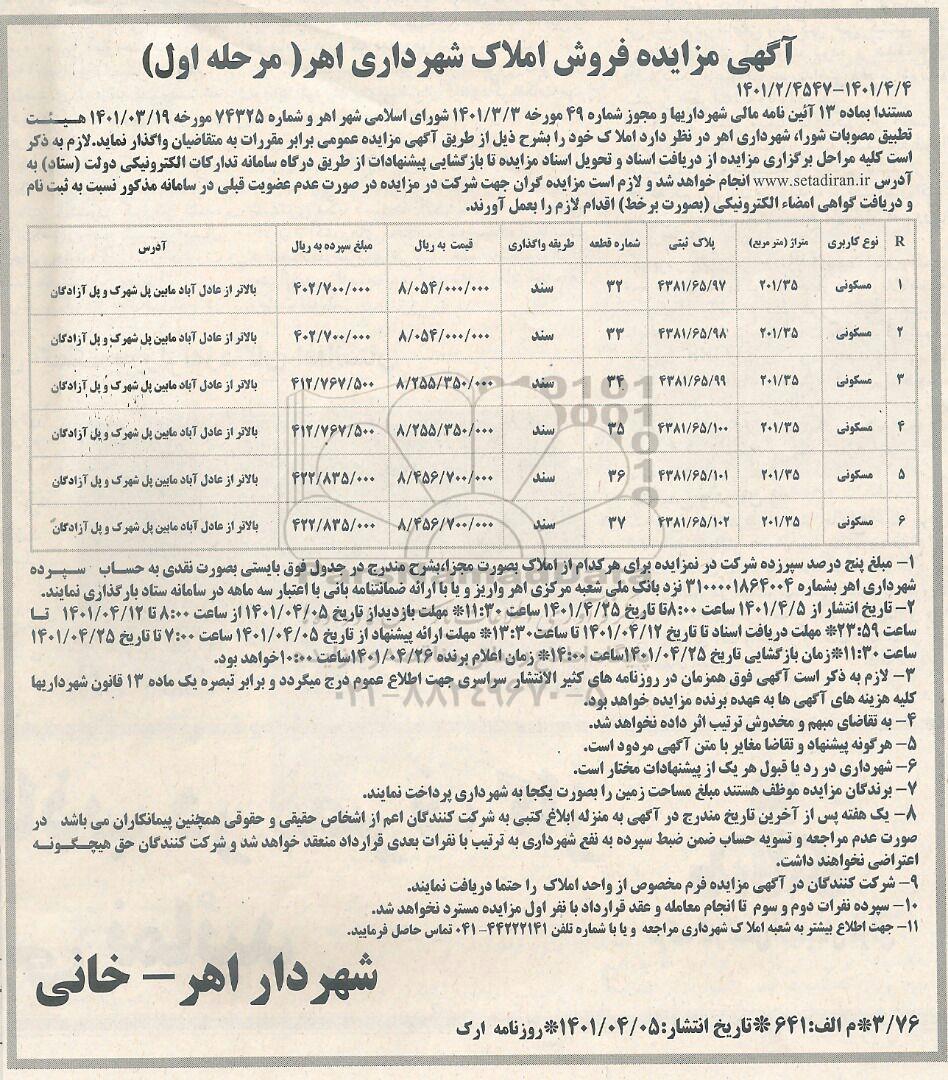 آگهی مزایده فروش املاک شهرداری اهر( مرحله اول)
۱۴۰۱/۲/۴۵۴۷-۱۴۰۱/۴/۴
مستندا بماده ۱۳ آئین نامه مالی شهرداریها و مجوز شماره ۴۹ مورخه ۱۴۰۱/۳/۳ شورای اسلامی شهر اهر و شماره ۷۴۳۲۵ مورخه ۱۴۰۱/۰۳/۱۹ هیئت
تطبیق مصوبات شورا، شهرداری اهر در نظر دارد املاک خود را بشرح ذیل از طریق آگهی مزایده عمومی برابر مقررات به متقاضیان واگذار نماید.لازم به ذکر
است کلیه مراحل برگزاری مزایده از دریافت اسناد و تحویل اسناد مزایده تا بازگشایی پیشنهادات از طریق درگاه سامانه تدارکات الکترونیکی دولت (ستاد) به
آدرس www.setadiran.ir انجام خواهد شد و لازم است مزایده گران جهت شرکت در مزایده در صورت عدم عضویت قبلی در سامانه مذکور نسبت به ثبت نام
و دریافت گواهی امضاء الکترونیکی (بصورت برخط) اقدام لازم را بعمل آورند.
R نوع کاربری متراژ (متر مربع) پلاک ثبتی شماره قطعه طریقه واگذاری قیمت به ریال مبلغ سپرده به ریال آدرس
۱ مسکونی ۲۰۱/۳۵ ۴۳۸۱/۶۵/۹۷ ۳۲ سند ۸/۰۵۴/۰۰۰/۰۰۰ ۴۰۲/۷۰۰/۰۰۰ بالاتر از عادل آباد مابین پل شهرک و پل آزادگان
۲ مسکونی ۲۰۱/۳۵ ۴۳۸۱/۶۵/۹۸ ۳۳ سند ۸/۰۵۴/۰۰۰/۰۰۰ ۴۰۲/۷۰۰/۰۰۰ بالاتر از عادل آباد مابین پل شهرک و پل آزادگان
۳ مسکونی ۲۰۱/۳۵ ۴۳۸۱/۶۵/۹۹ ۳۴ سند ۸/۲۵۵/۳۵۰/۰۰۰ ۴۱۲/۷۶۷/۵۰۰ بالاتر از عادل آباد مابین پل شهرک و پل آزادگان
۴ مسکونی ۲۰۱/۳۵ ۴۳۸۱/۶۵/۱۰۰ ۳۵ سند ۸/۲۵۵/۳۵۰/۰۰۰ ۴۱۲/۷۶۷/۵۰۰ بالاتر از عادل آباد مابین پل شهرک و پل آزادگان
۵ مسکونی ۲۰۱/۳۵ ۴۳۸۱/۶۵/۱۰۱ ۳۶ سند ۸/۴۵۶/۷۰۰/۰۰۰ ۴۲۲/۸۳۵/۰۰۰ بالاتر از عادل آباد مابین پل شهرک و پل آزادگان
۶ مسکونی ۲۰۱/۳۵ ۴۳۸۱/۶۵/۱۰۲ ۳۷ سند ۸/۴۵۶/۷۰۰/۰۰۰ ۴۲۲/۸۳۵/۰۰۰ بالاتر از عادل آباد مابین پل شهرک و پل آزادگان
۱- مبلغ پنج درصد سپرزده شرکت در نمزایده برای هرکدام از املاک بصورت مجزا،بشرح مندرج در جدول فوق بایستی بصورت نقدی به حساب سپرده
شهرداری اهر بشماره ۳۱۰۰۰۰۱۸۶۴۰۰۴ نزد بانک ملی شعبه مرکزی اهر واریز و یا با ارائه ضمانتنامه بانی با اعتبار سه ماهه در سامانه ستاد بارگذاری نمایند.
۲- تاریخ انتشار از ۱۴۰۱/۴/۵ ساعت ۸:۰۰تا تاریخ ۱۴۰۱/۴/۲۵ ساعت ۱۱:۳۰* مهلت بازدیداز تاریخ ۱۴۰۱/۰۴/۰۵ از ساعت ۸:۰۰ تا ۱۴۰۱/۰۴/۱۲ تا
ساعت ۲۳:۵۹* مهلت دریافت اسناد تا تاریخ ۱۴۰۱/۰۴/۱۲ تا ساعت۱۳:۳۰* مهلت ارائه پیشنهاد از تاریخ ۱۴۰۱/۰۴/۰۵ ساعت ۷:۰۰ تا تاریخ ۱۴۰۱/۰۴/۲۵
ساعت ۱۱:۳۰*زمان بازگشایی تاریخ ۱۴۰۱/۰۴/۲۵ساعت ۱۴:۰۰* زمان اعلام برنده ۱۴۰۱/۰۴/۲۶ساعت ۱۰:۰۰خواهد بود.
۳- لازم به ذکر است آگهی فوق همزمان در روزنامه های کثیر الانتشار سراسری جهت اطلاع عموم درج میگردد و برابر تبصره یک ماده ۱۳ قانون شهرداریها
کلیه هزینه های آگهی ها به عهده برنده مزایده خواهد بود.
۴- به تقاضای مبهم و مخدوش ترتیب اثر داده نخواهد شد.
۵- هرگونه پیشنهاد و تقاضا مغایر با متن آگهی مردود است.
۶- شهرداری در رد یا قبول هر یک از پیشنهادات مختار است.
۷- برندگان مزایده موظف هستند مبلغ مساحت زمین را بصورت یکجا به شهرداری پرداخت نمایند.
۸- یک هفته پس از آخرین تاریخ مندرج در آگهی به منزله ابلاغ کتبی به شرکت کنندگان اعم از اشخاص حقیقی و حقوقی همچنین پیمانکاران می باشد در
صورت عدم مراجعه و تسویه حساب ضمن ضبط سپرده به نفع شهرداری به ترتیب با نفرات بعدی قرارداد منعقد خواهد شد و شرکت کنندگان حق هیچگونه
اعتراضی نخواهند داشت.
۹- شرکت کنندگان در آگهی مزایده فرم مخصوص از واحد املاک را حتما دریافت نمایند.
۱۰- سپرده نفرات دوم و سوم تا انجام معامله و عقد قرارداد با نفر اول مزایده مسترد نخواهد شد.
۱۱- جهت اطلاع بیشتر به شعبه املاک شهرداری مراجعه و یا با شماره تلفن ۴۴۲۲۲۱۴۱-۰۴۱ تماس حاصل فرمایید.
شهردار اهر – خانی
۳/۷۶*م الف:۶۴۱ *تاریخ انتشار:۱۴۰۱/۰۴/۰۵*روزنامه ارک